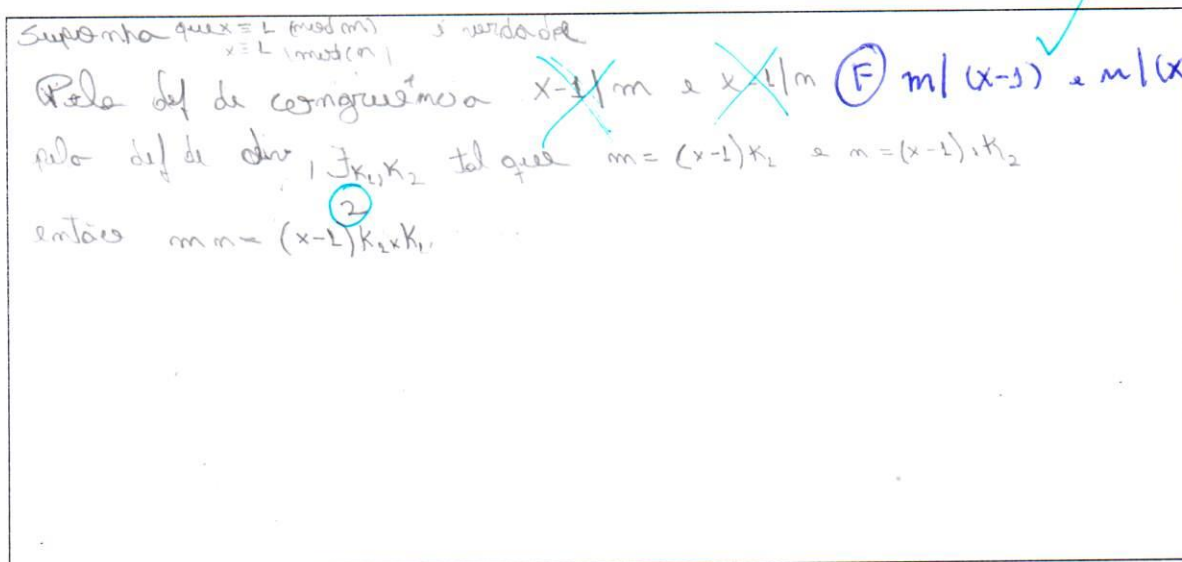 Suponha que x ≡ 1 (mod m) é verdade
x ≡ 1 (mod n)
Pela def de congruência x-1/m e x-1/n (F) m|(x-1) e n|(x
pela def de div, ∃K₁,K₂ tal que m = (x-1)K₁ e n = (x-1).K₂
2
então m n = (x-1)K₂xK₁.